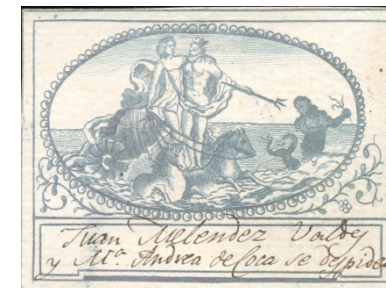 Juan Melendez Valdes
y Mª. Andrea de Coca se despiden